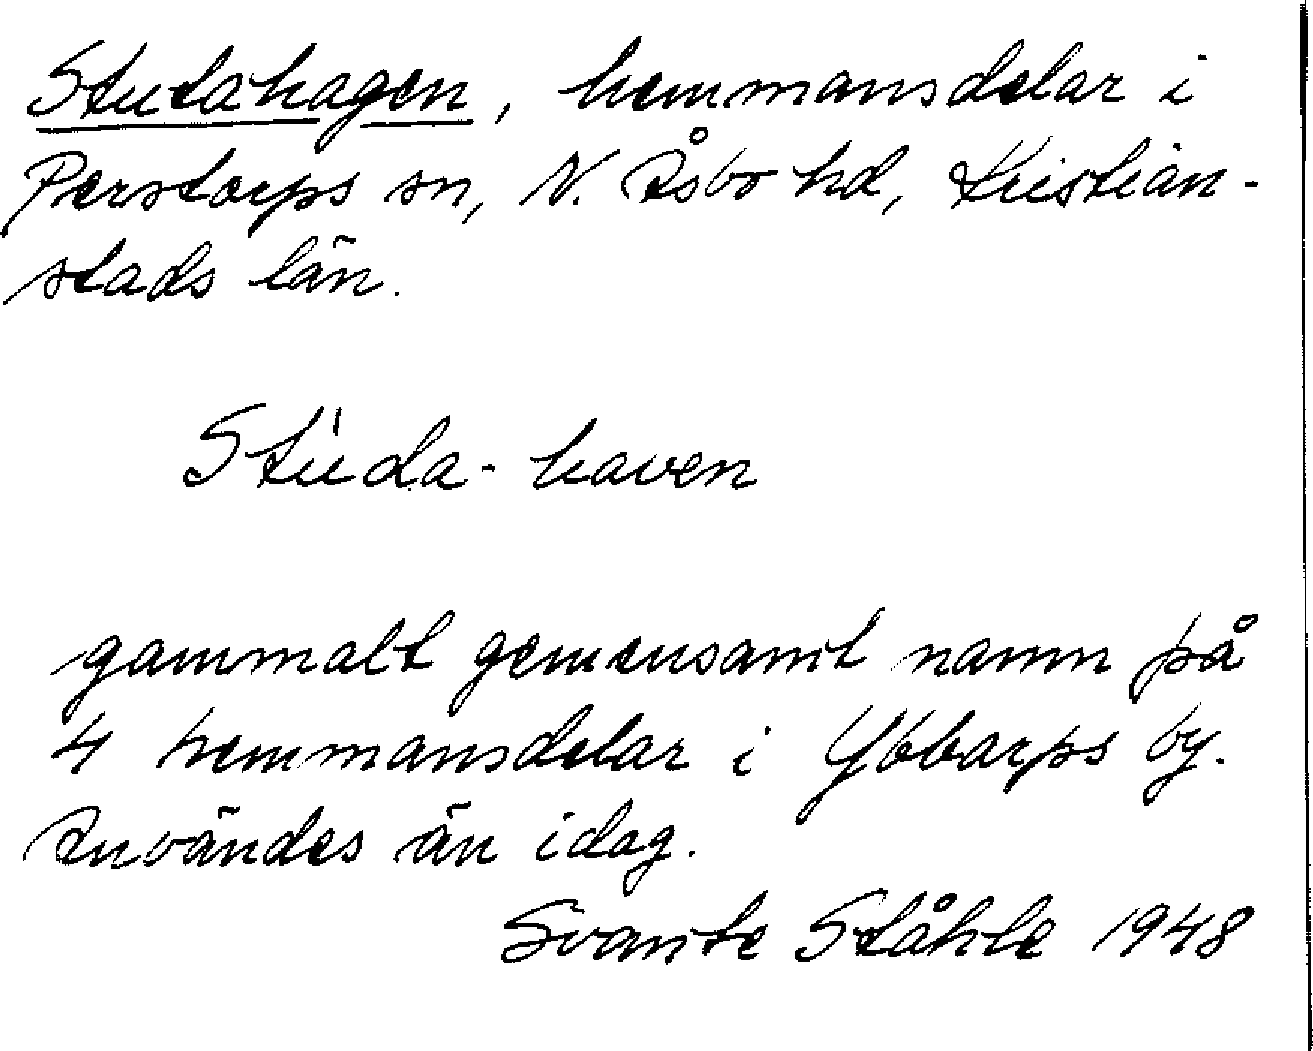 Stutahagen, hemmansdelar i
Perstorps sn, N. Åsbo hd, Kristian-
stads län.
Stúda-haven
gammalt gemensamt namn på
4 hemmansdelar i Ybbarps by.
Användes än idag.
Svante Ståhle 1948